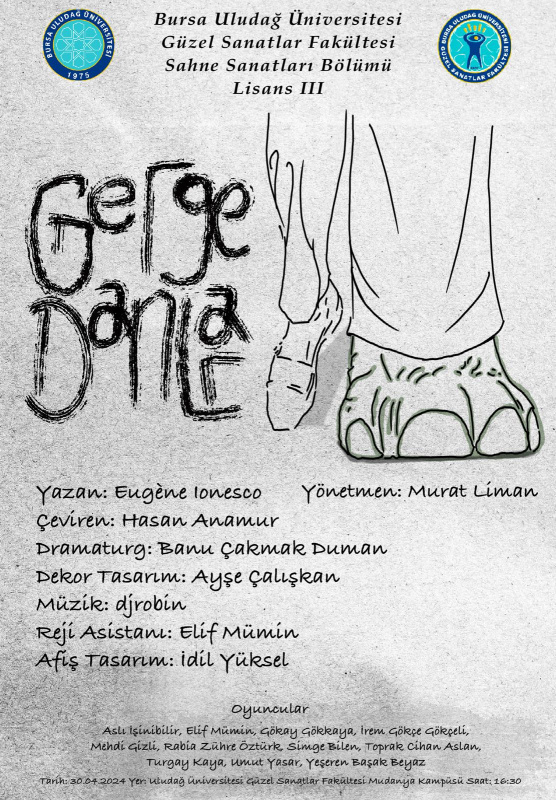 Bursa Uludağ Üniversitesi
Güzel Sanatlar Fakültesi
Sahne Sanatları Bölümü
Lisans III
BURSA ULUDAĞ ÜNİVERSİTESİ
1975
BURSA ULUDAĞ ÜNİVERSİTESİ
GÜZEL SANATLAR FAKÜLTESİ
Gerge
Danlar
Yazan: Eugène Ionesco
Yönetmen: Murat Liman
Çeviren: Hasan Anamur
Dramaturg: Banu Çakmak Duman
Dekor Tasarım: Ayşe Çalışkan
Müzik: djrobin
Reji Asistanı: Elif Mümin
Afiş Tasarım: İdil Yüksel
Oyuncular
Aslı İşinibilir, Elif Mümin, Gökay Gökkaya, İrem Gökçe Gökçeli,
Mehdi Gizli, Rabia Zühre Öztürk, Simge Bilen, Toprak Cihan Aslan,
Turgay Kaya, Umut Yasar, Yeşeren Başak Beyaz
Tarih: 30.04.2024 Yer: Uludağ Üniversitesi Güzel Sanatlar Fakültesi Mudanya Kampüsü Saat: 16:30